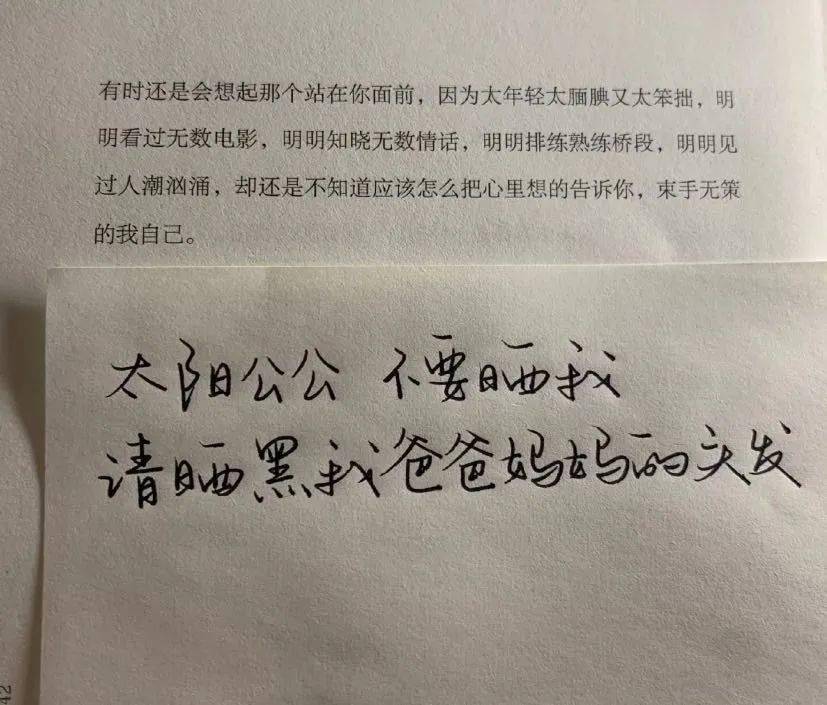 有时还是会想起那个站在你面前，因为太年轻太腼腆又太笨拙，明
明看过无数电影，明明知晓无数情话，明明排练熟练桥段，明明见
过人潮汹涌，却还是不知道应该怎么把心里想的告诉你，束手无策
的我自己。
太阳公公 不要晒我
请晒黑我爸爸妈妈的头发
42